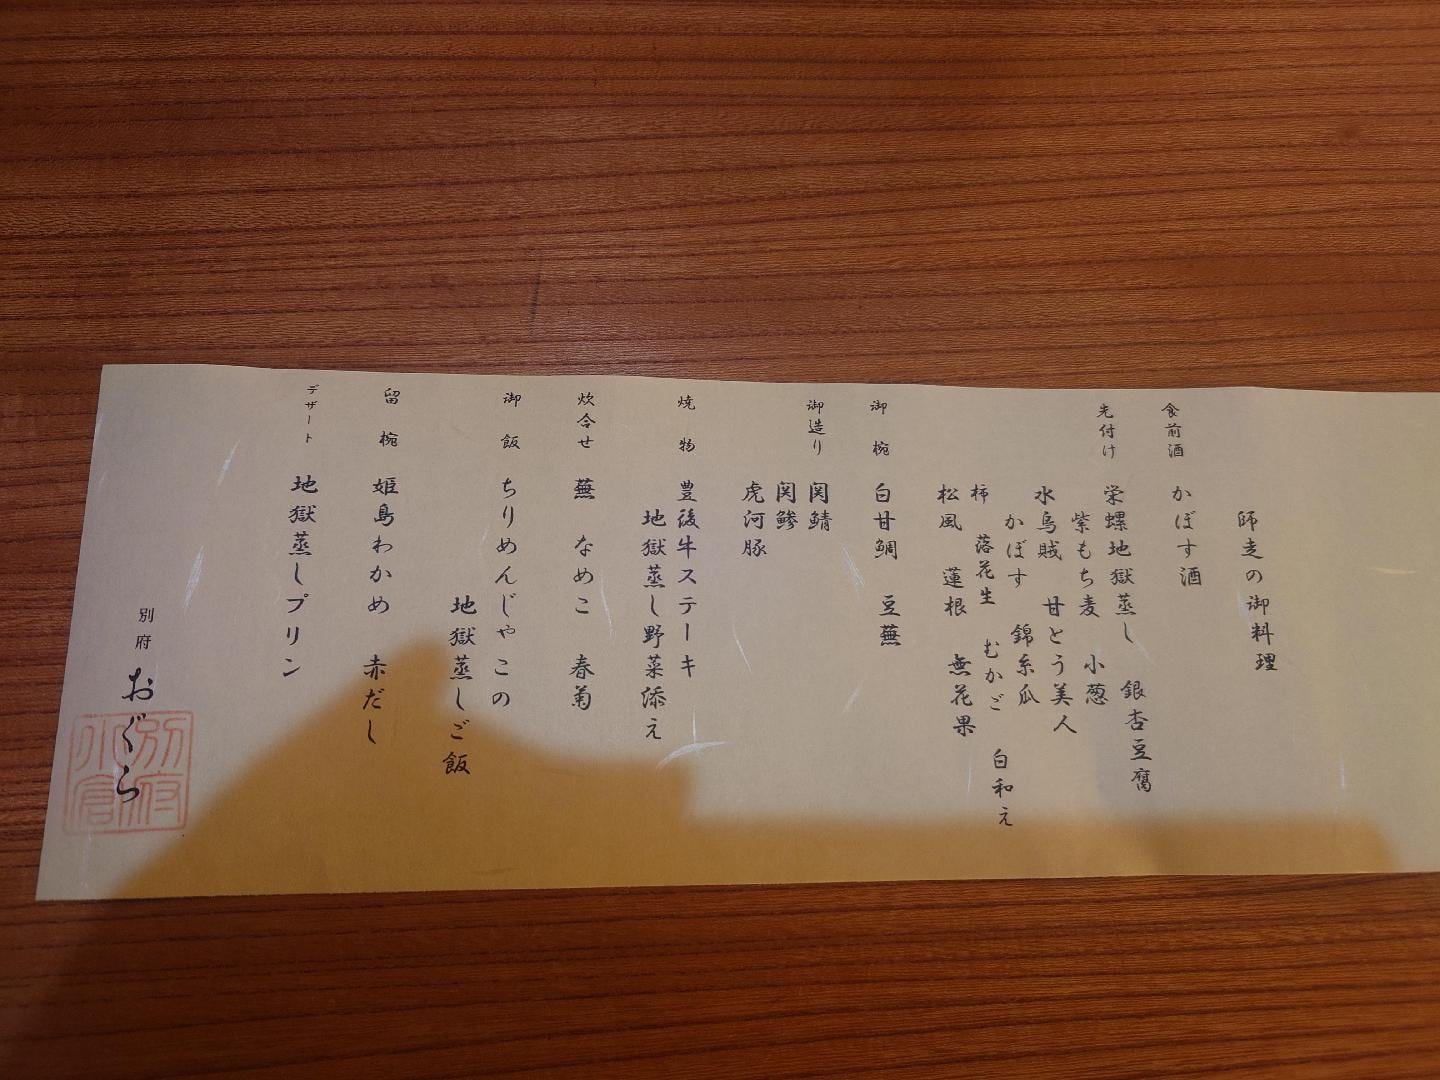 師走の御料理
食前酒 かぼす酒
先付け 栄螺地獄蒸し 銀杏豆腐
紫もち麦 小葱
水烏賊 甘とう美人
かぼす 錦糸瓜
柿 落花生 むかご 白和え
松風 蓮根 無花果
御椀 白甘鯛 豆蕪
御造り 関鯖
関鯵
虎河豚
焼物 豊後牛ステーキ
地獄蒸し野菜添え
炊合せ 蕪 なめこ 春菊
御飯 ちりめんじゃこの
地獄蒸しご飯
留椀 姫島わかめ 赤だし
デザート 地獄蒸しプリン
別府 おぐら
別府
小倉